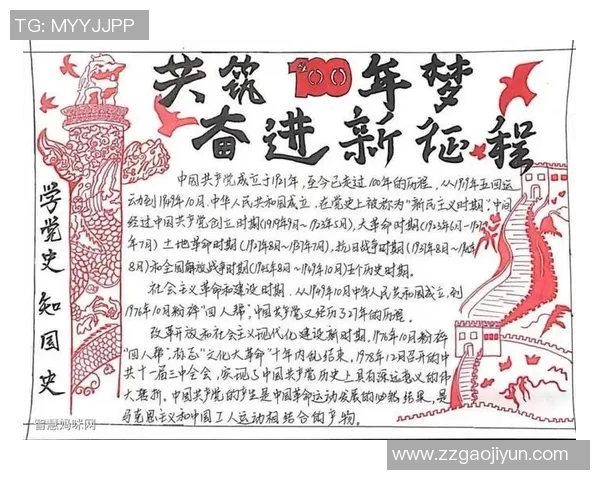 TG: MYYJJPP
共筑100年梦
奋进新征程
学党史 知国史
中国共产党成立于1921年,至今已走过100年的历程。从1919年五四运
动到1949年10月,中华人民共和国成立,在党史上被称为"新民主义时期",中间
经过中国共产党创立时期(1919年9月~1923年5月),大革命时期(1923年6月~1927
年7月)土地革命时期(1927年8月~1937年7月),抗日战争时期(1937年8月~1945年
8月)和全国解放战争时期(1945年8月~1949年10月)五个历史时期。
社会主义革命和建设时期,从1949年10月中华人民共和国成立,到
1976年10月粉碎"四人帮",中国共产党又经历了27年的历程。
改革开放和社会主义现代化建设新时期,1976年10月粉碎
"四人帮",标志"文化大革命"十年内乱结束,1978年12月召开的中
共十一届三中全会,实现了中国共产党历史上具有深远意义的伟
大转折。中国共产党的产生是中国革命运动发展的必然结果,是
马克思主义和中国工人运动相结合的产物。
智慧妈咪网
www.zzgaojiyun.com